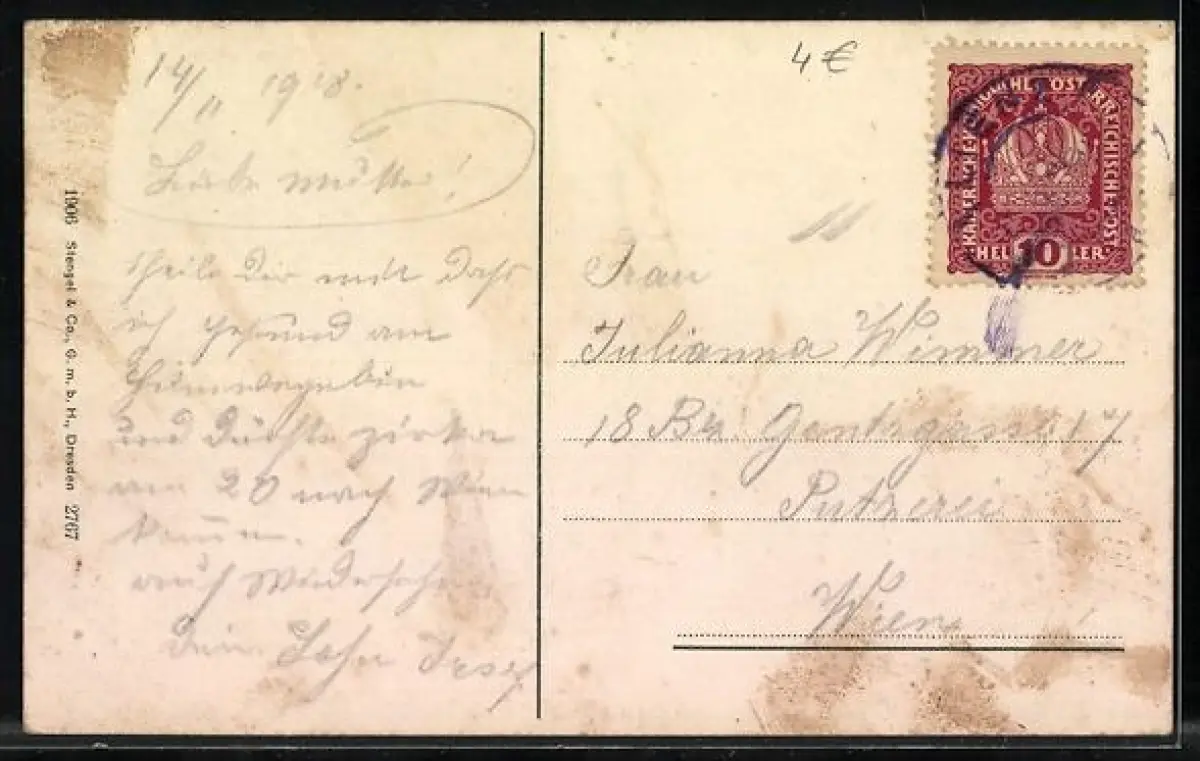 14/11 1918.
Liebe Mutter!
theile dir mit dass
ich gesund am
und dürfte zirka
am 20 nach Wien
kommen.
auf Wiedersehen
Dein Sohn Josef
1906 Stengel & Co., G. m. b. H., Dresden 2767
4 €
KAISERLICHE KÖNIGLICHE ÖSTERREICHISCHE POST
10
HELLER
Frau
Julianna Wimmer
18 Bz. Gentzgasse 17
Putzerei
Wien